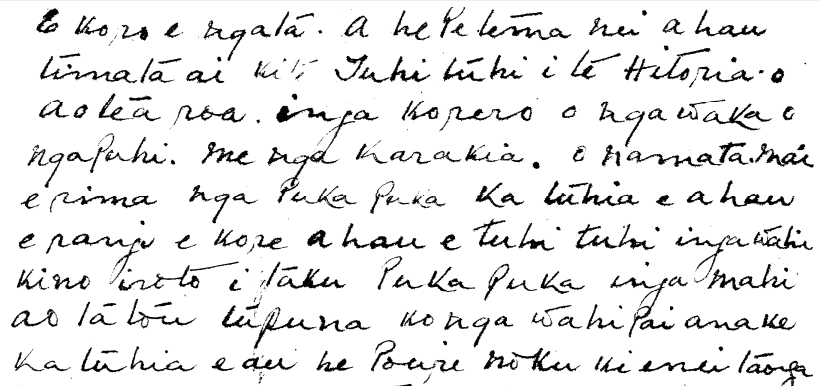 E koro e ngata. A hepetema nei ahau
timata ai ki te Tuhi tuhi i te Hitoria. o
aotea roa. inga korero o nga waka o
ngapuhi. me nga karakia. o namata. mai
e rima nga puka puka ka tuhia e ahau
e rangi e kore ahau e tuhi tuhi inga wahi
kino iroto i taku puka puka inga mahi
ao tatou tupuna ko nga wahi pai anake
ka tuhia e au he pouri noku ki enei taonga